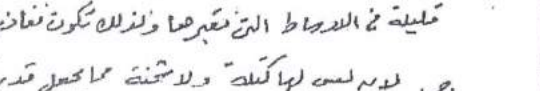 قليلة في الاوساط التي تعبرها ولذلك تكون نفاذ
ج. لانه ليس لها كتلة ولا شحنة مما يجعل قدر